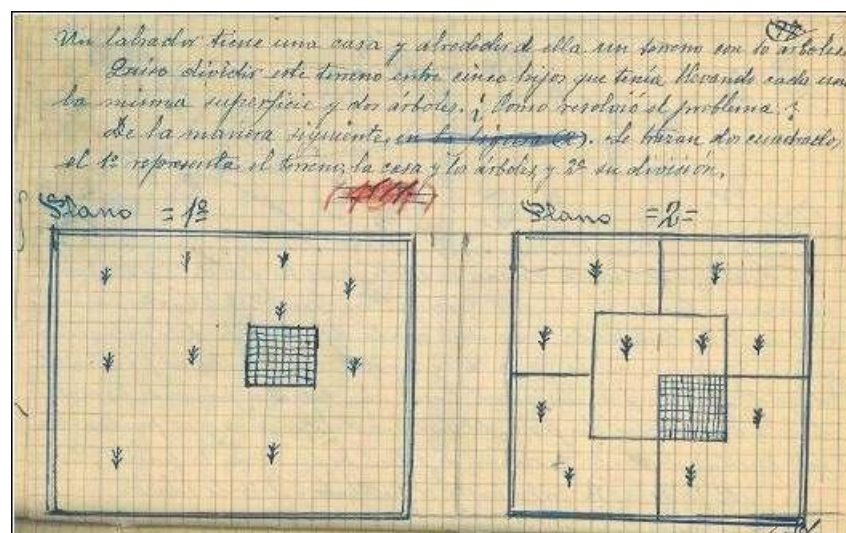 Un labrador tiene una casa y alrededor de ella un terreno con 10 árboles.
Quiso dividir este terreno entre cinco hijos que tenía llevando cada uno
la misma superficie y dos árboles. ¿Como resolvió el problema?
De la manera siguiente, en la figura (2). Se trazan dos cuadrados,
el 1º representa el terreno, la casa y los árboles y 2º su división.
Plano = 1º
Plano =2=